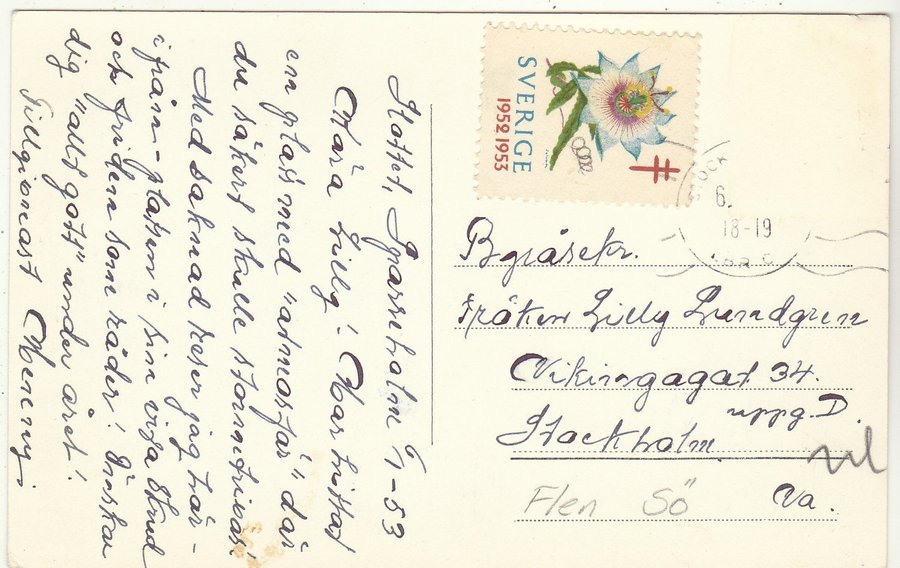 Slottet, Sparreholm 6/1-53
Kära Lilly! Har hittat
en plats med "atmosfär" där
du säkert skulle stormtrivas!
Med saknad reser jag här-
ifrån - platsen i sin vita skrud
och friden som råder! Önskar
dig "allt gott" under året!
Tillgivnast
SVERIGE
1952 1953
STOCK
6.
18-19
Byråsekr.
Fröken Lilly Lundgren
Vikingagat. 34.
uppg. D.
Stockholm
Va.
Flen Sö